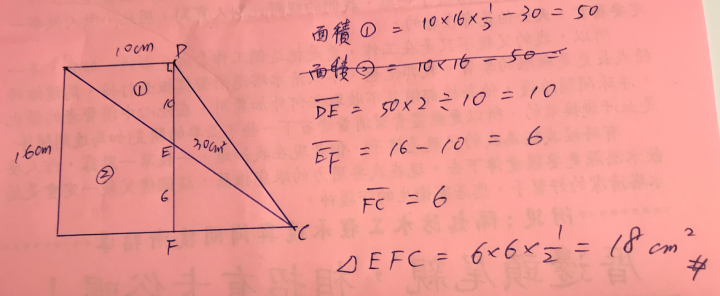 10cm
D
①
10
16cm
E
30cm²
②
6
F
C
面積① = 10×16×½−30 = 50
面積② = 10×16 − 50 =
DE = 50×2÷10 = 10
EF = 16−10 = 6
FC = 6
△EFC = 6×6×½ = 18 cm² #